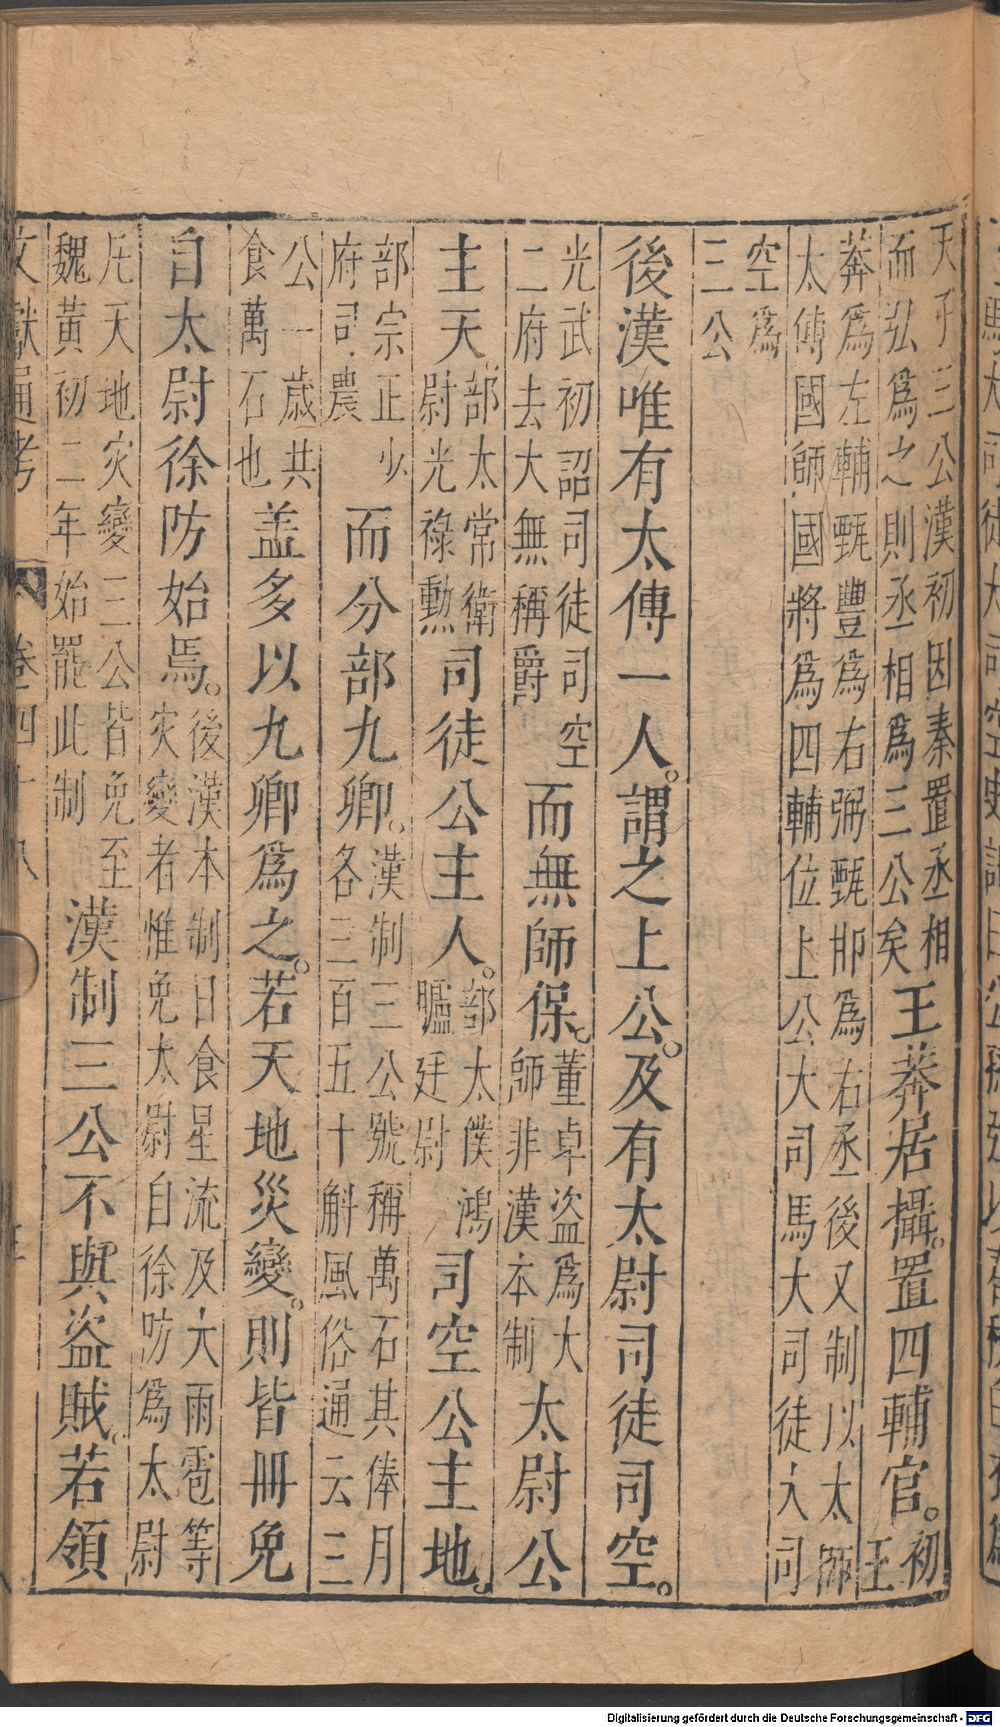 天子三公漢初因秦置丞相
而泓爲之則丞相爲三公矣
王莽居攝。置四輔官。
初
王
莽爲左輔甄豐爲右弼甄邯爲右丞後又制以太師
太傅國師國將爲四輔位上公大司馬大司徒大司
空爲
三公
後漢唯有太傅一人。謂之上公。及有太尉司徒司空。
光武初詔司徒司空
二府去大無稱爵
而無師保。
董卓盗爲大
師非漢本制
太尉公
主天。
部太常衛
尉光祿勲
司徒公主人。
部太僕鴻
臚廷尉
司空公主地。
部宗正少
府司農
而分部九卿。
漢制三公號稱萬石其俸月
各三百五十斛風俗通云三
公一歲共
食萬石也
盖多以九卿爲之。若天地災變。則皆册免
自太尉徐防始焉。
後漢本制日食星流及大雨雹等
灾變者惟免太尉自徐防爲太尉
凡天地灾變三公皆免至
魏黃初二年始罷此制
漢制三公不與盗賊。若領
文獻通考 卷四十八
Digitalisierung gefördert durch die Deutsche Forschungsgemeinschaft - DFG